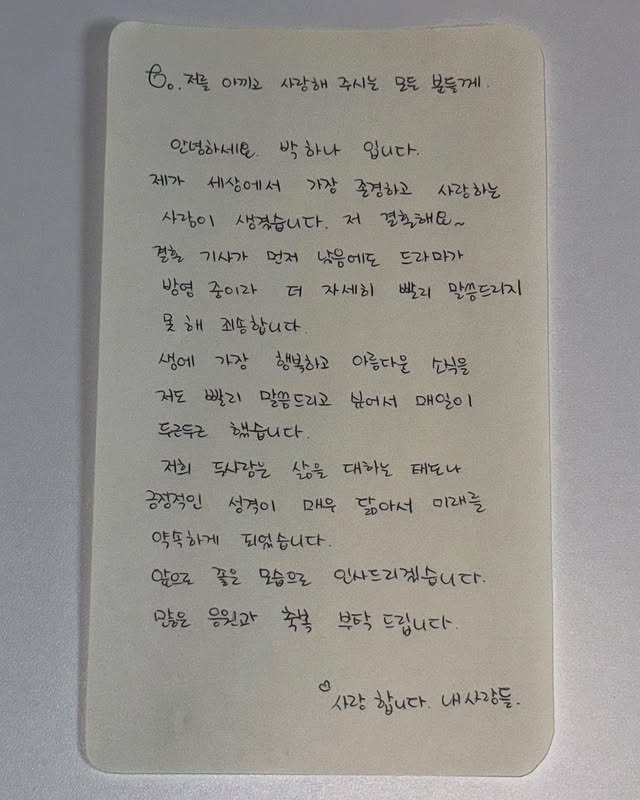 저를 아끼고 사랑해 주시는 모든 분들께.
안녕하세요. 박하나 입니다.
제가 세상에서 가장 존경하고 사랑하는
사람이 생겼습니다. 저 결혼해요~
결혼 기사가 먼저 났음에도 드라마가
방영 중이라 더 자세히 빨리 말씀드리지
못해 죄송합니다.
생에 가장 행복하고 아름다운 소식을
저도 빨리 말씀드리고 싶어서 매일이
두근두근 했습니다.
저희 두사람은 삶을 대하는 태도나
긍정적인 성격이 매우 닮아서 미래를
약속하게 되었습니다.
앞으로 좋은 모습으로 인사드리겠습니다.
많은 응원과 축복 부탁 드립니다.
사랑 합니다. 내사람들.